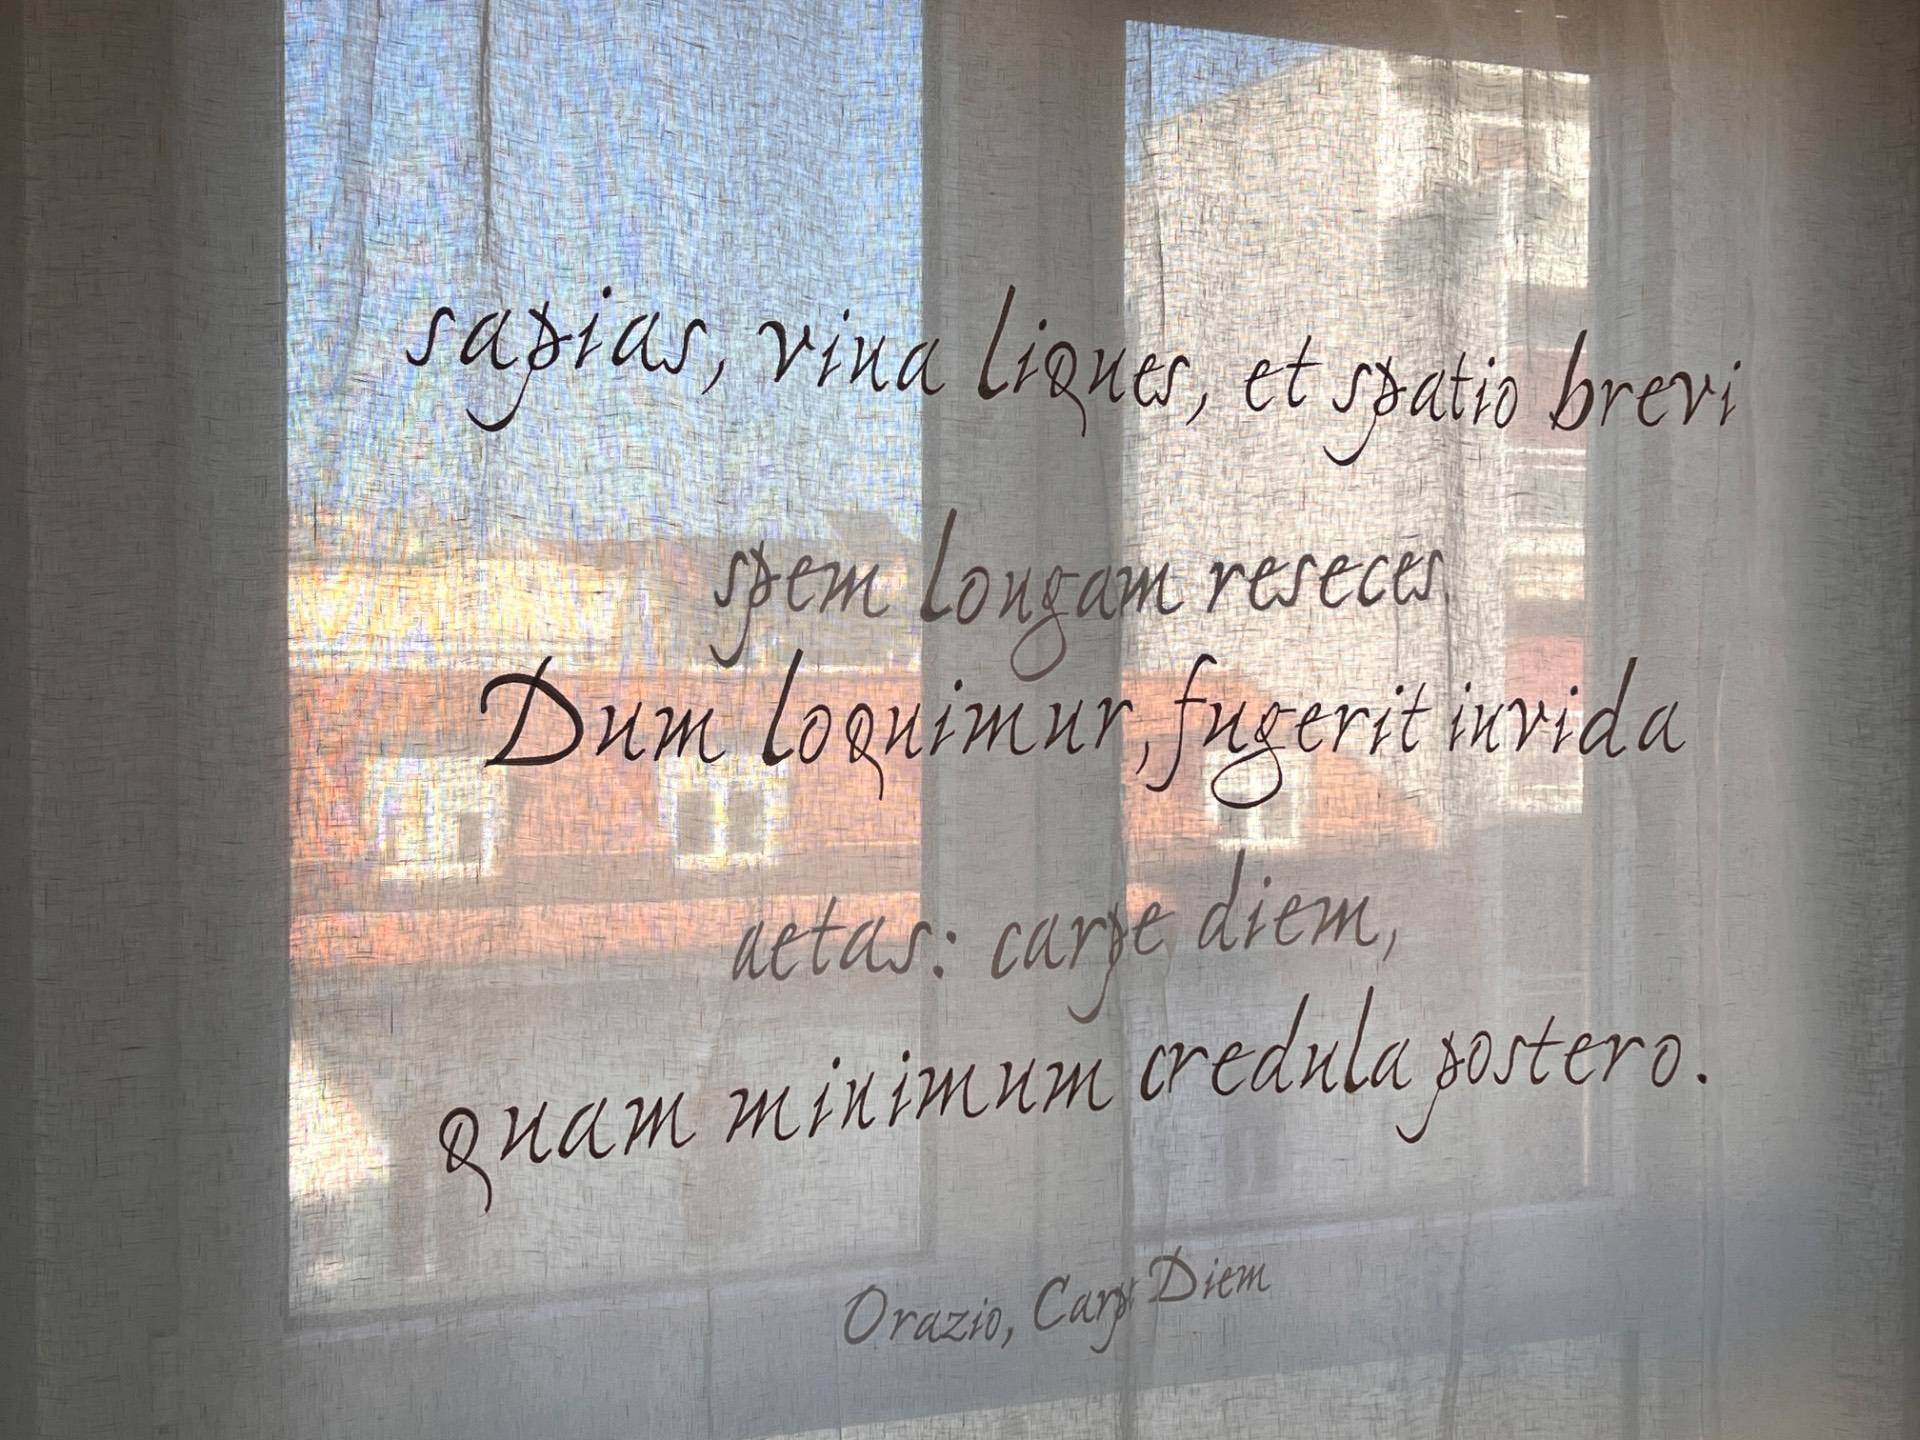 sapias, vina liques, et spatio brevi
spem longam reseces.
Dum loquimur, fugerit invida
aetas: carpe diem,
quam minimum credula postero.
Orazio, Carpe Diem